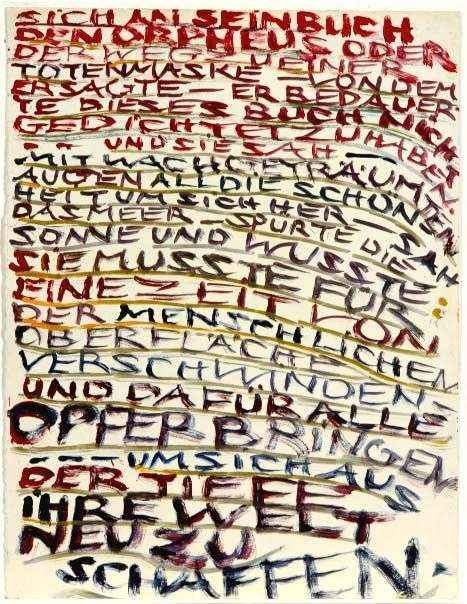 SICH AN SEIN BUCH
DEN ORPHEUS ODER
DER WEG ZU EINER
TOTENMASKE — VON DEM
ER SAGTE — ER BEDAUER-
TE DIESES BUCH NICH
GEDICHTET ZU HABEN.
- - UND SIE SAH —
- MIT WACHGETRÄUMTEN
AUGEN ALL DIE SCHÖN-
HEIT UM SICH HER — SAH
DAS MEER — SPÜRTE DIE
SONNE UND WUSSTE
SIE MUSSTE FÜR
EINE ZEIT VON
DER MENSCHLICHEN
OBERFLÄCHE
VERSCHWINDEN -
UND DAFÜR ALLE
OPFER BRINGEN
- - - UM SICH AUS
DER TIEFE
IHRE WELT
NEU ZU
SCHAFFEN.